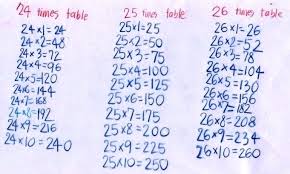 24 times table
24×1=24
24×2=48
24×3=72
24×4=96
24×5=120
24×6=144
24×7=168
24×8=192
24×9=216
24×10=240
25 times table
25×1=25
25×2=50
25×3=75
25×4=100
25×5=125
25×6=150
25×7=175
25×8=200
25×9=225
25×10=250
26 times table
26×1=26
26×2=52
26×3=78
26×4=104
26×5=130
26×6=156
26×7=182
26×8=208
26×9=234
26×10=260